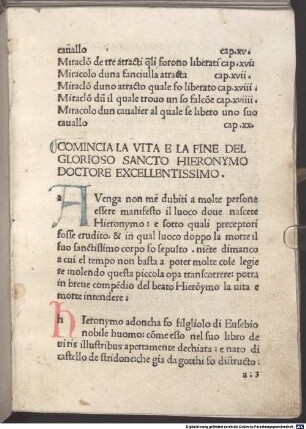 cauallo cap.xv.
Miraclõ de tre atracti q̃li forono liberati cap.xvii
Miracolo duna fanciulla atracta cap.xvii.
Miraclõ duno atracto quale fo liberato cap.xviii.
Miraclõ dũ il quale trouo un so falcõe cap.xviiii.
Miracolo dun caualier al quale se libeto uno suo
cauallo cap.xx.
COMINCIA LA VITA E LA FINE DEL
GLORIOSO SANCTO HIERONYMO
DOCTORE EXCELLENTISSIMO.
a AVenga non mẽ dubiti a molte persone
essere manifesto il luoco doue nascete
Hieronymo: e sotto quali preceptori
fosse erudito: & in qual luoco doppo la morte il
suo sanctissimo corpo fo sepulto . niẽte dimanco
a cui el tempo non basta a poter molte cose legie
re uolendo questa piccola opa transcorrere: potra
in breue compẽdio del beato Hierõymo la uita e
morte intendere:
h hIeronymo adoncha fo filgliolo di Eusebio
nobile huomo: cõme esso nel suo libro de
uiris illustribus apertamente dechiara: e nato di
castello de stridone: che gia da gotthi fo distructo:
a:3